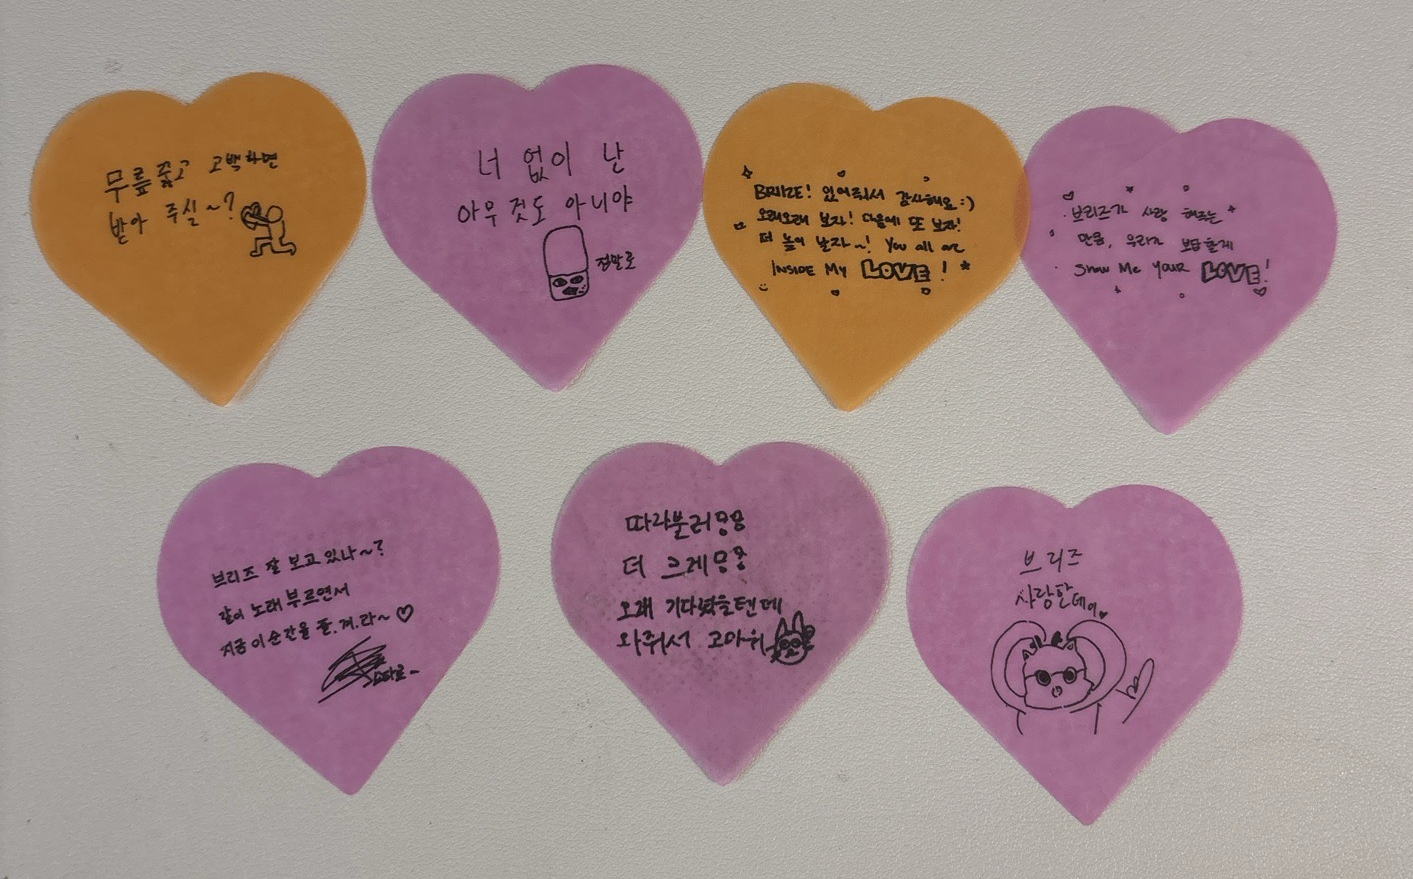 무릎 꿇고 고백하면
받아 주실~?
너 없이 난
아무것도 아니야
정말로
BRIIZE! 있어줘서 감사해요:)
오래오래 보자! 다음에 또 보자!
더 높이 날자~! You all are
INSIDE MY LOVE!
브리즈가 사랑 해주는
만큼, 우리가 보답할게
Show Me Your LOVE!
브리즈 잘 보고 있나~?
같이 노래 부르면서
지금 이 순간을 즐.겨.라~♡
따라불러용용
더 크게용용
오래 기다렸을텐데
와줘서 고마워
브리즈
사랑한데이♥